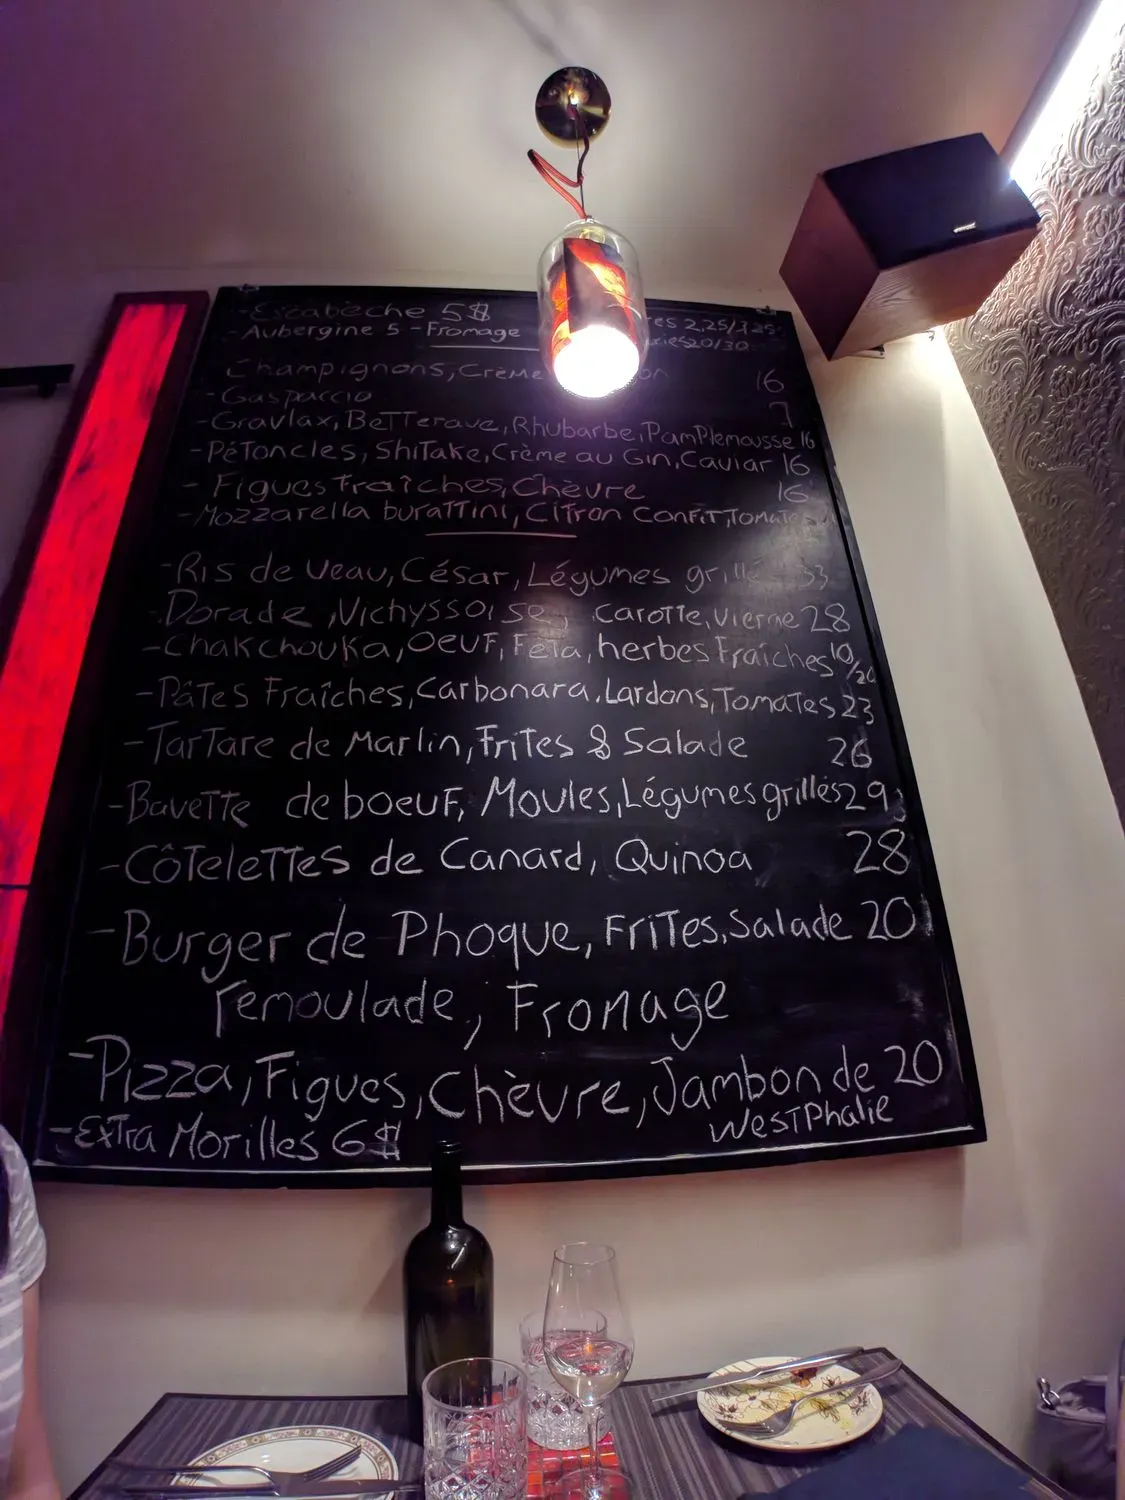 - Escabèche 5$
- Aubergine 5 - Fromage 2,25/3,25
20/30
Champignons, Crème 16
- Gaspaccio 7
- Gravlax, Betterave, Rhubarbe, Pamplemousse 16
- Pétoncles, Shitake, Crème au Gin, Caviar 16
- Figues Fraîches, Chèvre 16
- Mozzarella burattini, Citron Confit, Tomates
- Ris de veau, César, Légumes grillés 33
- Dorade, Vichyssoise, Carotte, Vierge 28
- Chakchouka, Oeuf, Feta, herbes Fraîches 10/20
- Pâtes Fraîches, Carbonara, Lardons, Tomates 23
- Tartare de Marlin, Frites & Salade 26
- Bavette de boeuf, Moules, Légumes grillés 29
- Côtelettes de Canard, Quinoa 28
- Burger de Phoque, Frites, Salade 20
remoulade, Fromage
- Pizza, Figues, Chèvre, Jambon de 20
Westphalie
- Extra Morilles 6$